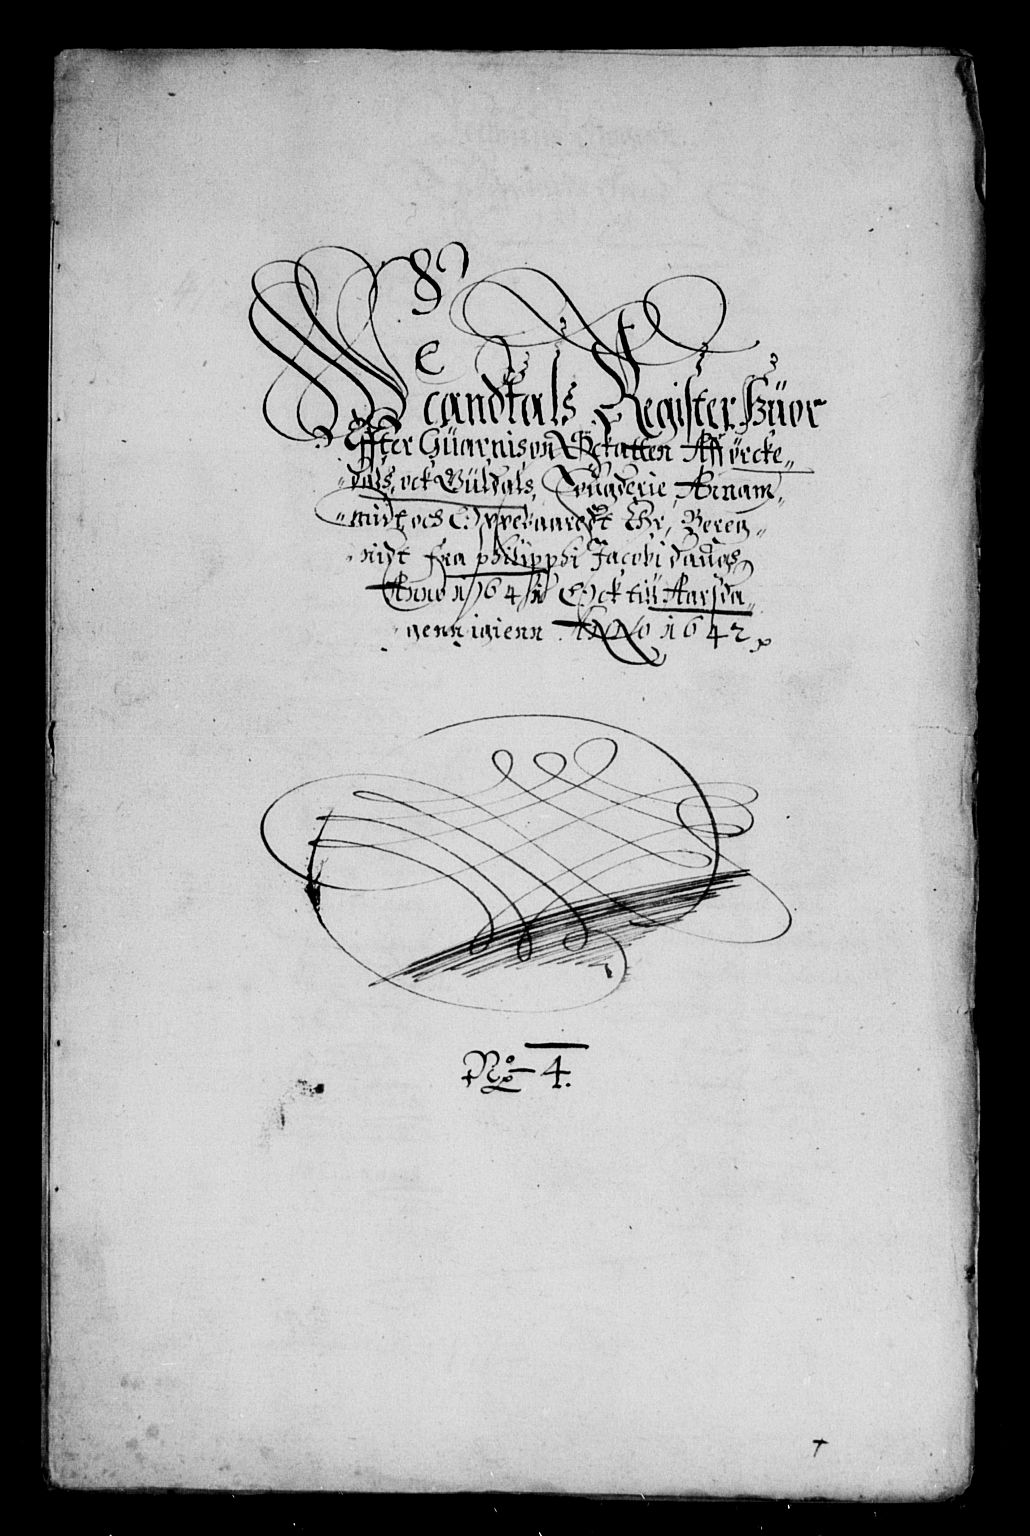 Mandtals Register Huor
Effter Guarnison Skatten Aff örcke„
„dals, ock Güldals, Fougderie, Annam„
„midt och Oppebaaredt Ehr, Bereg„
„nidt fra philippi Jacobi daugs
Anno 1641 Ock till Aarsda„
„genn igienn ANNO 1642
No 4.